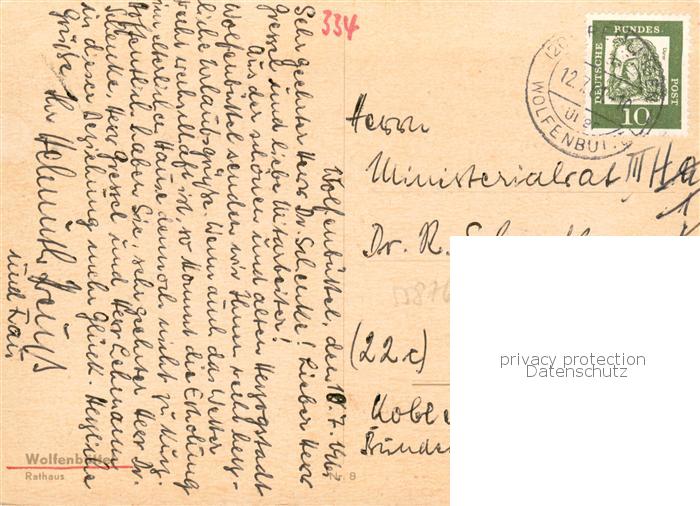 334
Wolfenbüttel, den 10.7.1961
Sehr geehrter Herr Dr. Schencke! Lieber Herr
Gressel und liebe Mitarbeiter!
Aus der schönen und alten Herzogstadt
Wolfenbüttel senden wir Ihnen recht herz-
liche Urlaubsgrüße. Wenn auch das Wetter
recht wechselhaft ist, so kommt die Erholung
im elterlichen Hause dennoch nicht zu kurz.
Hoffentlich haben Sie, sehr geehrter Herr Dr.
Schencke, Herr Gressel und Herr Lehmann
in dieser Beziehung mehr Glück. Herzliche
Grüße Ihr Helmuth
und Frau
Herrn
Ministerialrat III
Dr. R.
(22c)
Koble
Bunde
DEUTSCHE BUNDES POST
10
WOLFENBÜTT
12.7.
Wolfenbüttel
Rathaus
Nr. 8
privacy protection
Datenschutz